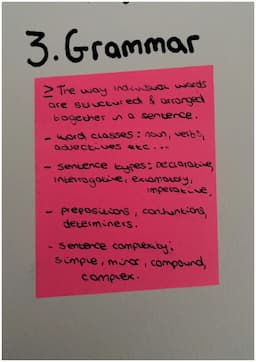 3. Grammar
≥ The way individual words
are structured & arranged
together in a sentence.
- word classes: noun, verbs,
adjectives etc...
- sentence types: Declarative,
interrogative, exlamatory,
imperative.
- prepositions, conjuntions,
determiners.
- sentence complexity:
simple, minor, compound,
complex.